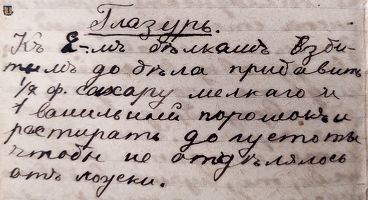 Глазурь.
Къ 2-мъ бѣлкамъ взби-
тымъ до бѣла прибавить
1/2 ф. сахару мелкаго и
1 ванильный порошокъ и
растирать до густоты
чтобы не отдѣлялось
отъ ложки.